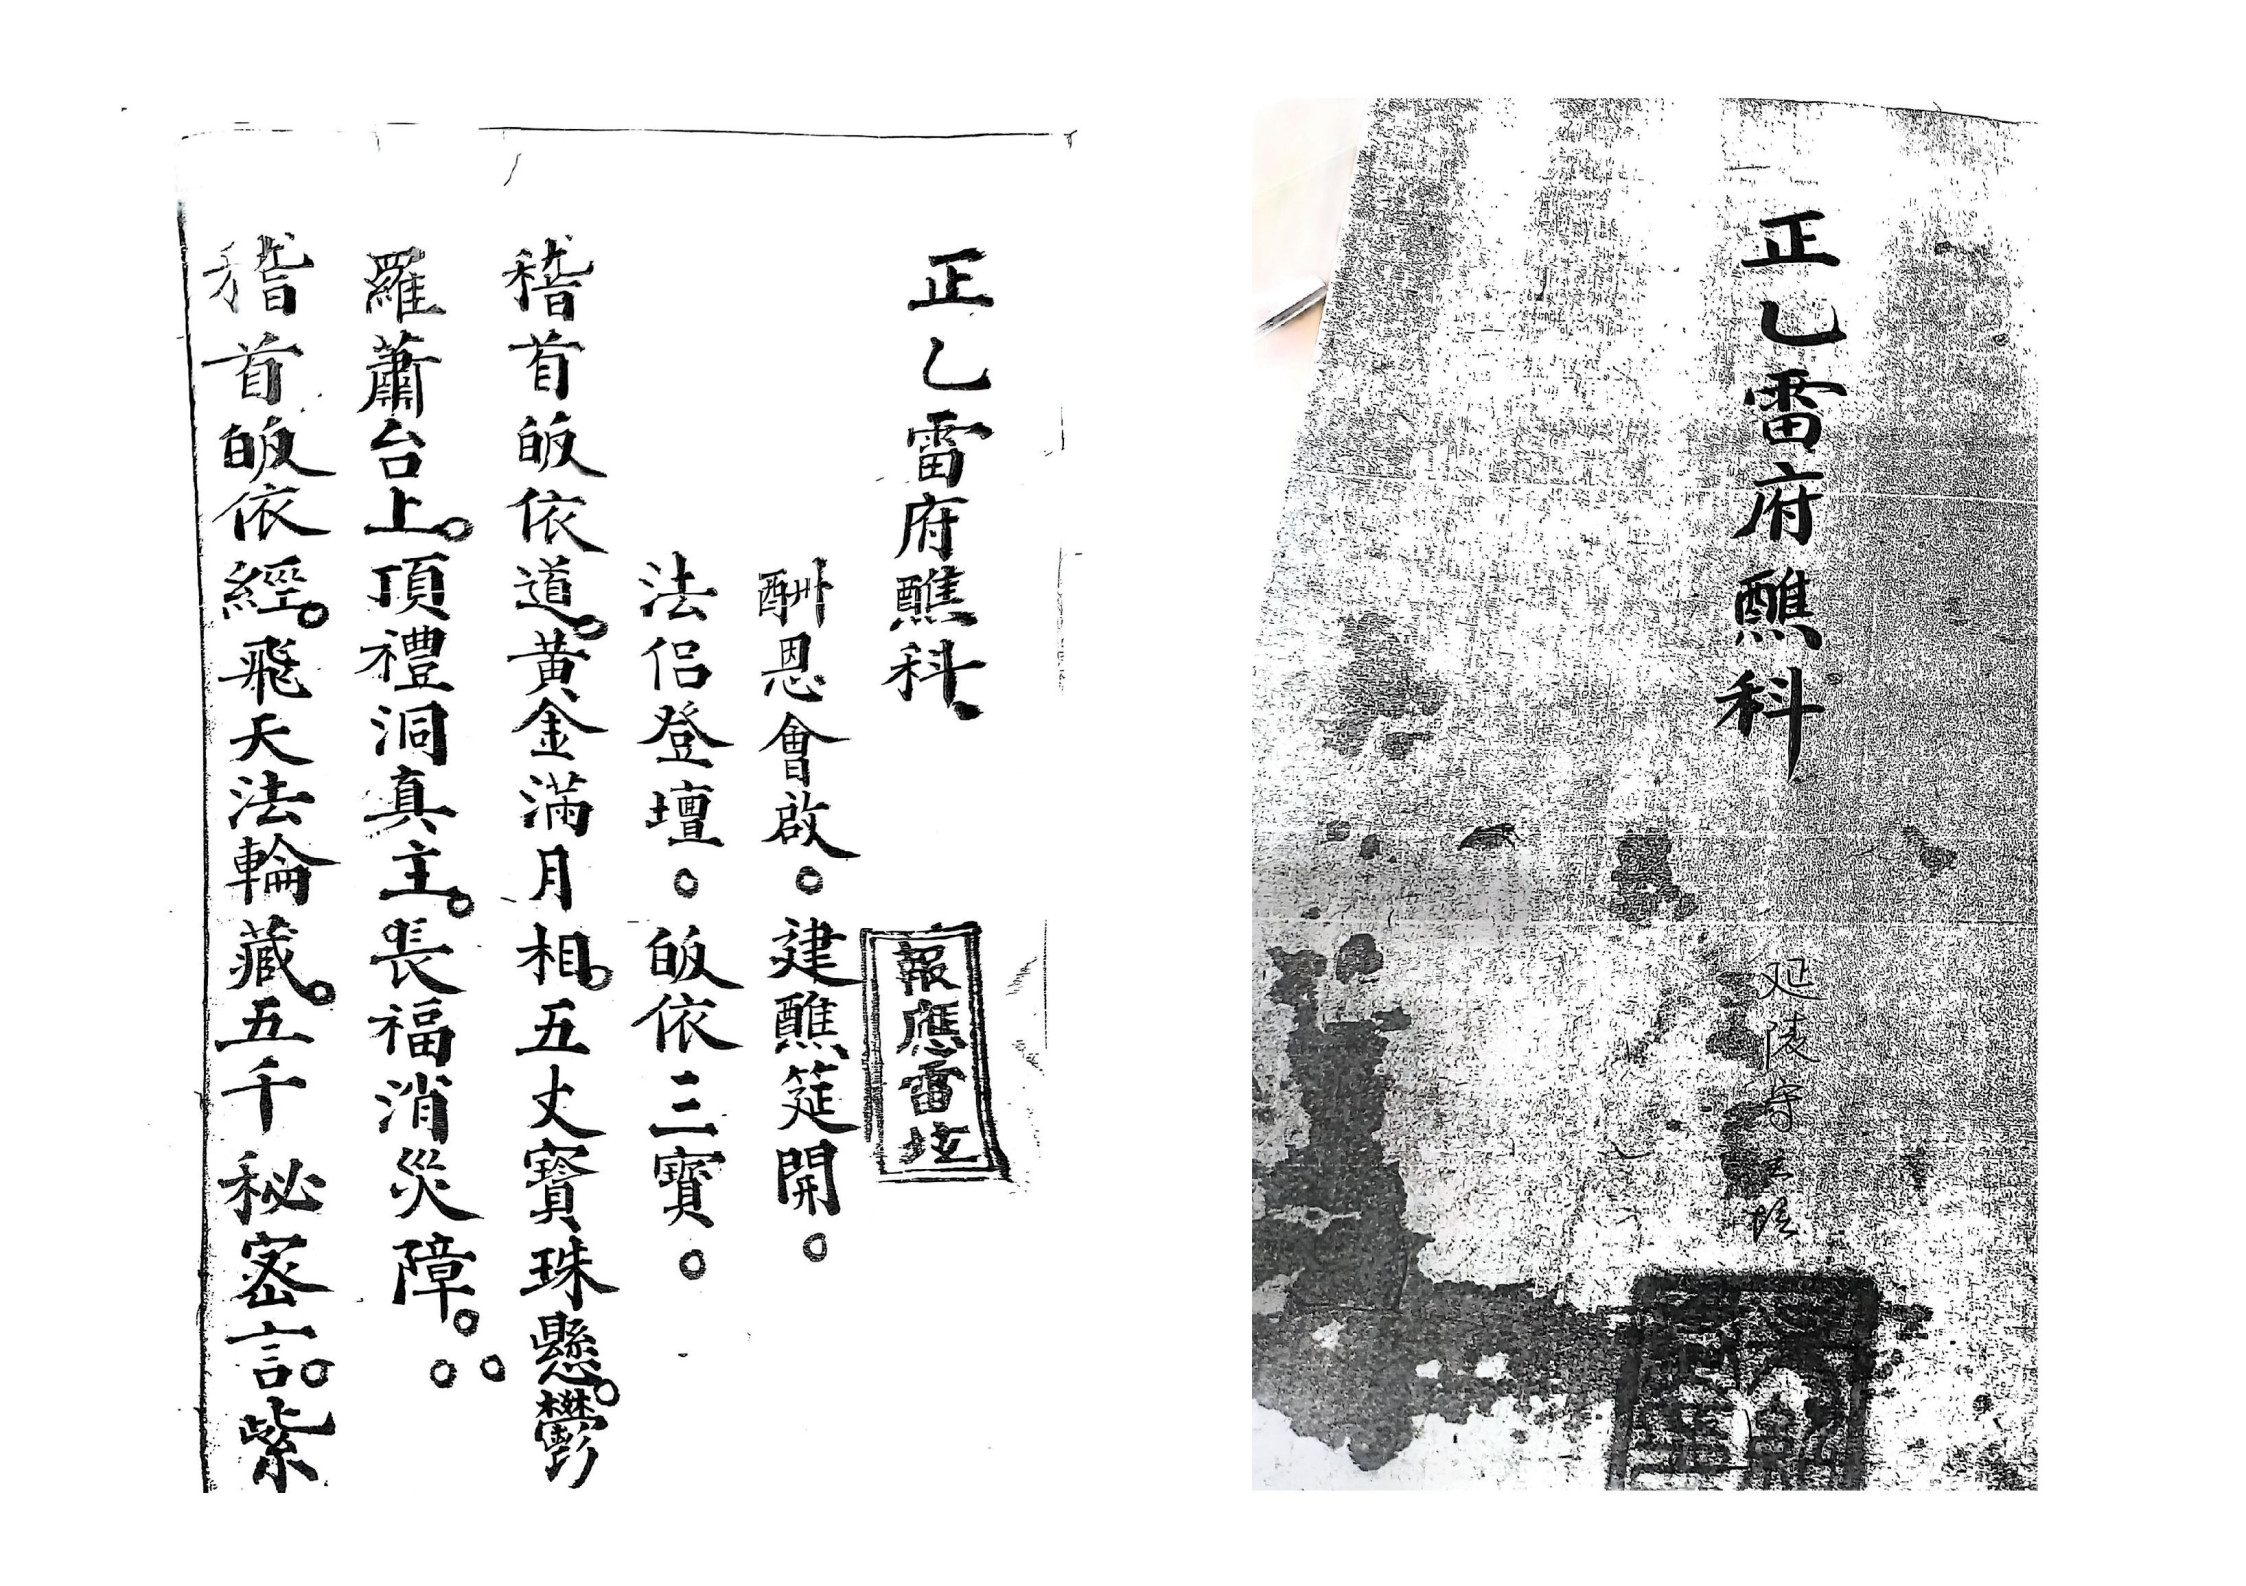 正乙雷府醮科
延陵守
正乙雷府醮科
報應雷坛
酬恩會啟。建醮筵開。
法侣登壇。皈依三寶。
稽首皈依道。黄金満月相。五丈寳珠懸。欝
羅蕭台上。頂禮洞真主。長福消災障。
稽首皈依經。飛天法輪藏。五千秘密言。紫